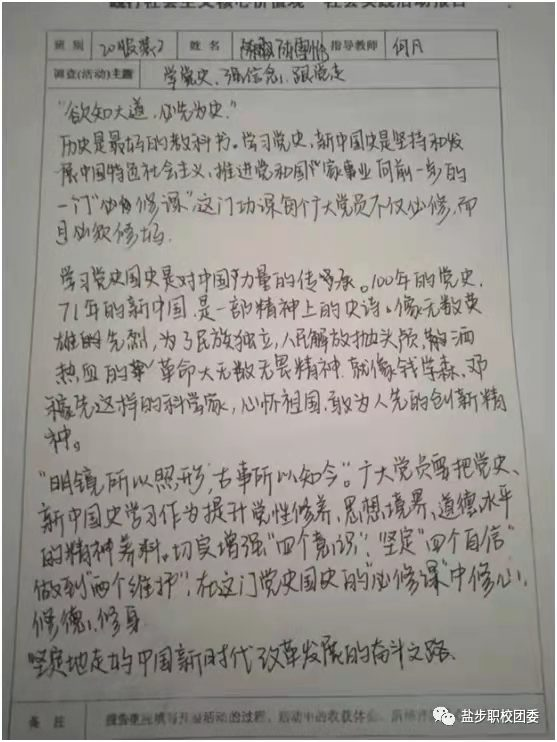 践行社会主义核心价值观 社会实践活动报告
班 别 20服装2 姓 名 陈 指导教师 何凡
调查(活动)主题 学党史、强信念、跟党走
"欲知大道,必先为史."
历史是最好的教科书。学习党史、新中国史是坚持和发
展中国特色社会主义、推进党和国家事业向前一步的
一门"必修课".这门功课每个广大党员不仅必修,而
且必须修好.
学习党史国史是对中国力量的传承。100年的党史.
71年的新中国.是一部精神上的史诗。像无数英
雄的先烈,为了民族独立,人民解放抛头颅、散洒
热血的革命大无数无畏精神.就像钱学森、邓
稼先这样的科学家,心怀祖国.敢为人先的创新精
神。
"明镜所以照形,古事所以知今"。广大党员需把党史、
新中国史学习作为提升党性修养、思想境界、道德水平
的精神养料。切实增强"四个意识"、坚定"四个自信"
做到"两个维护",在这门党史国史的"必修课"中修心、
修德、修身.
坚定地走好中国新时代改革发展的奋斗之路、
备 注 报告里应填写开展活动的过程、活动中的收获体会、
盐步职校团委